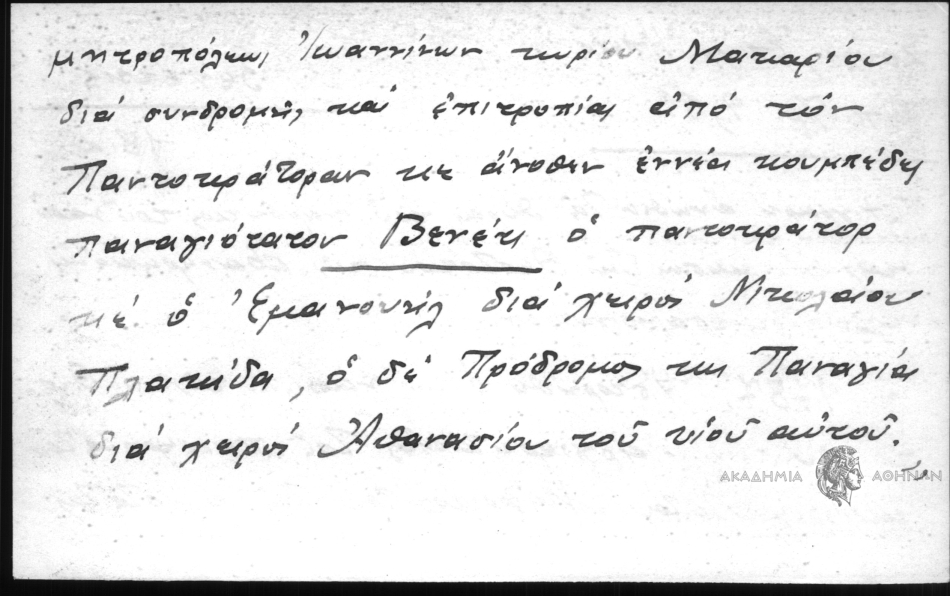 μητροπόλεως Ἰωαννίνων κυρίου Μακαρίου
διά συνδρομῆς καί ἐπιτροπίας ἀπό τόν
Παντοκράτοραν κὲ ἄνοθεν ἐννέα κουμπέδες
παναγιότατον Βενέτι ὁ παντοκράτορ
κέ ὁ Ἐμανουήλ διά χειρός Νικολάου
Πλακίδα, ὁ δέ Πρόδρομος κι Παναγία
διά χειρός Ἀθανασίου τοῦ υἱοῦ αὐτοῦ.
ΑΚΑΔΗΜΙΑ ΑΘΗΝΩΝ